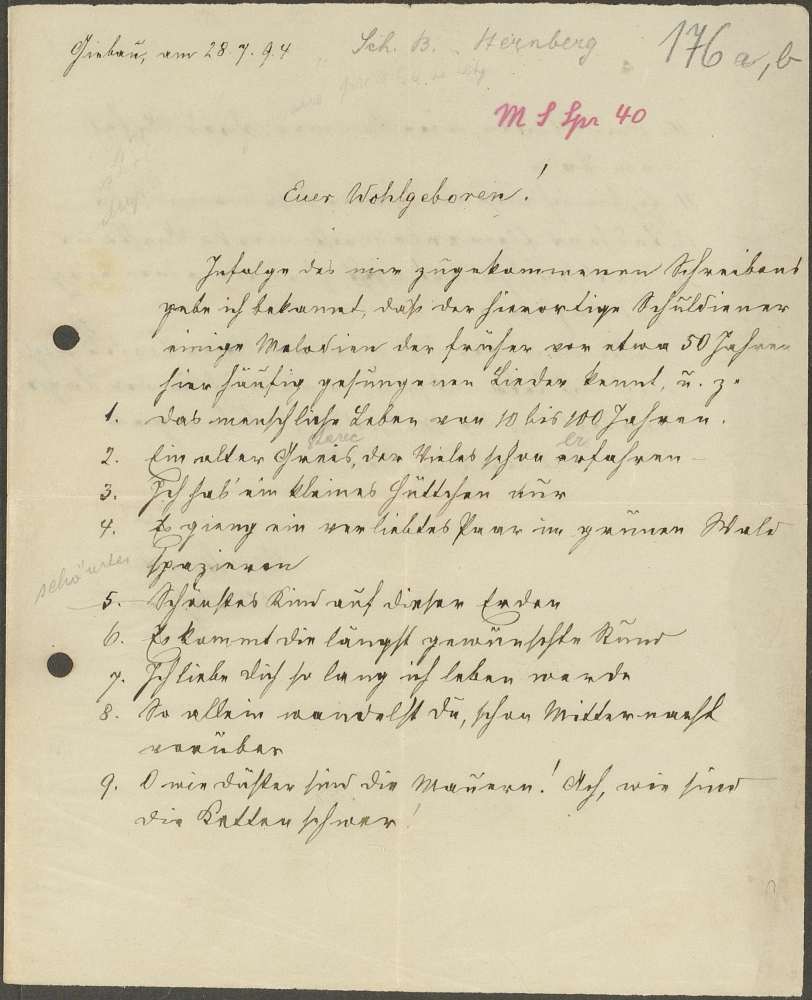 Giebau, am 28.7.94
Sch. B. Sternberg
176 a, b
M S Spr 40
Euer Wohlgeboren!
Infolge des mir zugekommenen Schreibens
gebe ich bekannt, daß der hierortige Schuldiener
einige Melodien der früher vor etwa 50 Jahren
hier häufig gesungenen Lieder kennt, u. z.
1. Das menschliche Leben von 10 bis 100 Jahren.
starec er
2. Ein alter Greis, der Vieles schon erfahren –
3. Ich hab' ein kleines Hüttchen nur
4. Es gieng ein verliebtes Paar im grünen Wald
spazieren
schönstes
5. Schönstes Kind auf dieser Erden
6. Es kommt die längst gewünschte Stund
7. Ich liebe dich so lang ich leben werde
8. So allein wandelst du, schon Mitternacht
vorüber
9. O wie düster sind die Mauern! Ach, wie sind
die Ketten schwer!